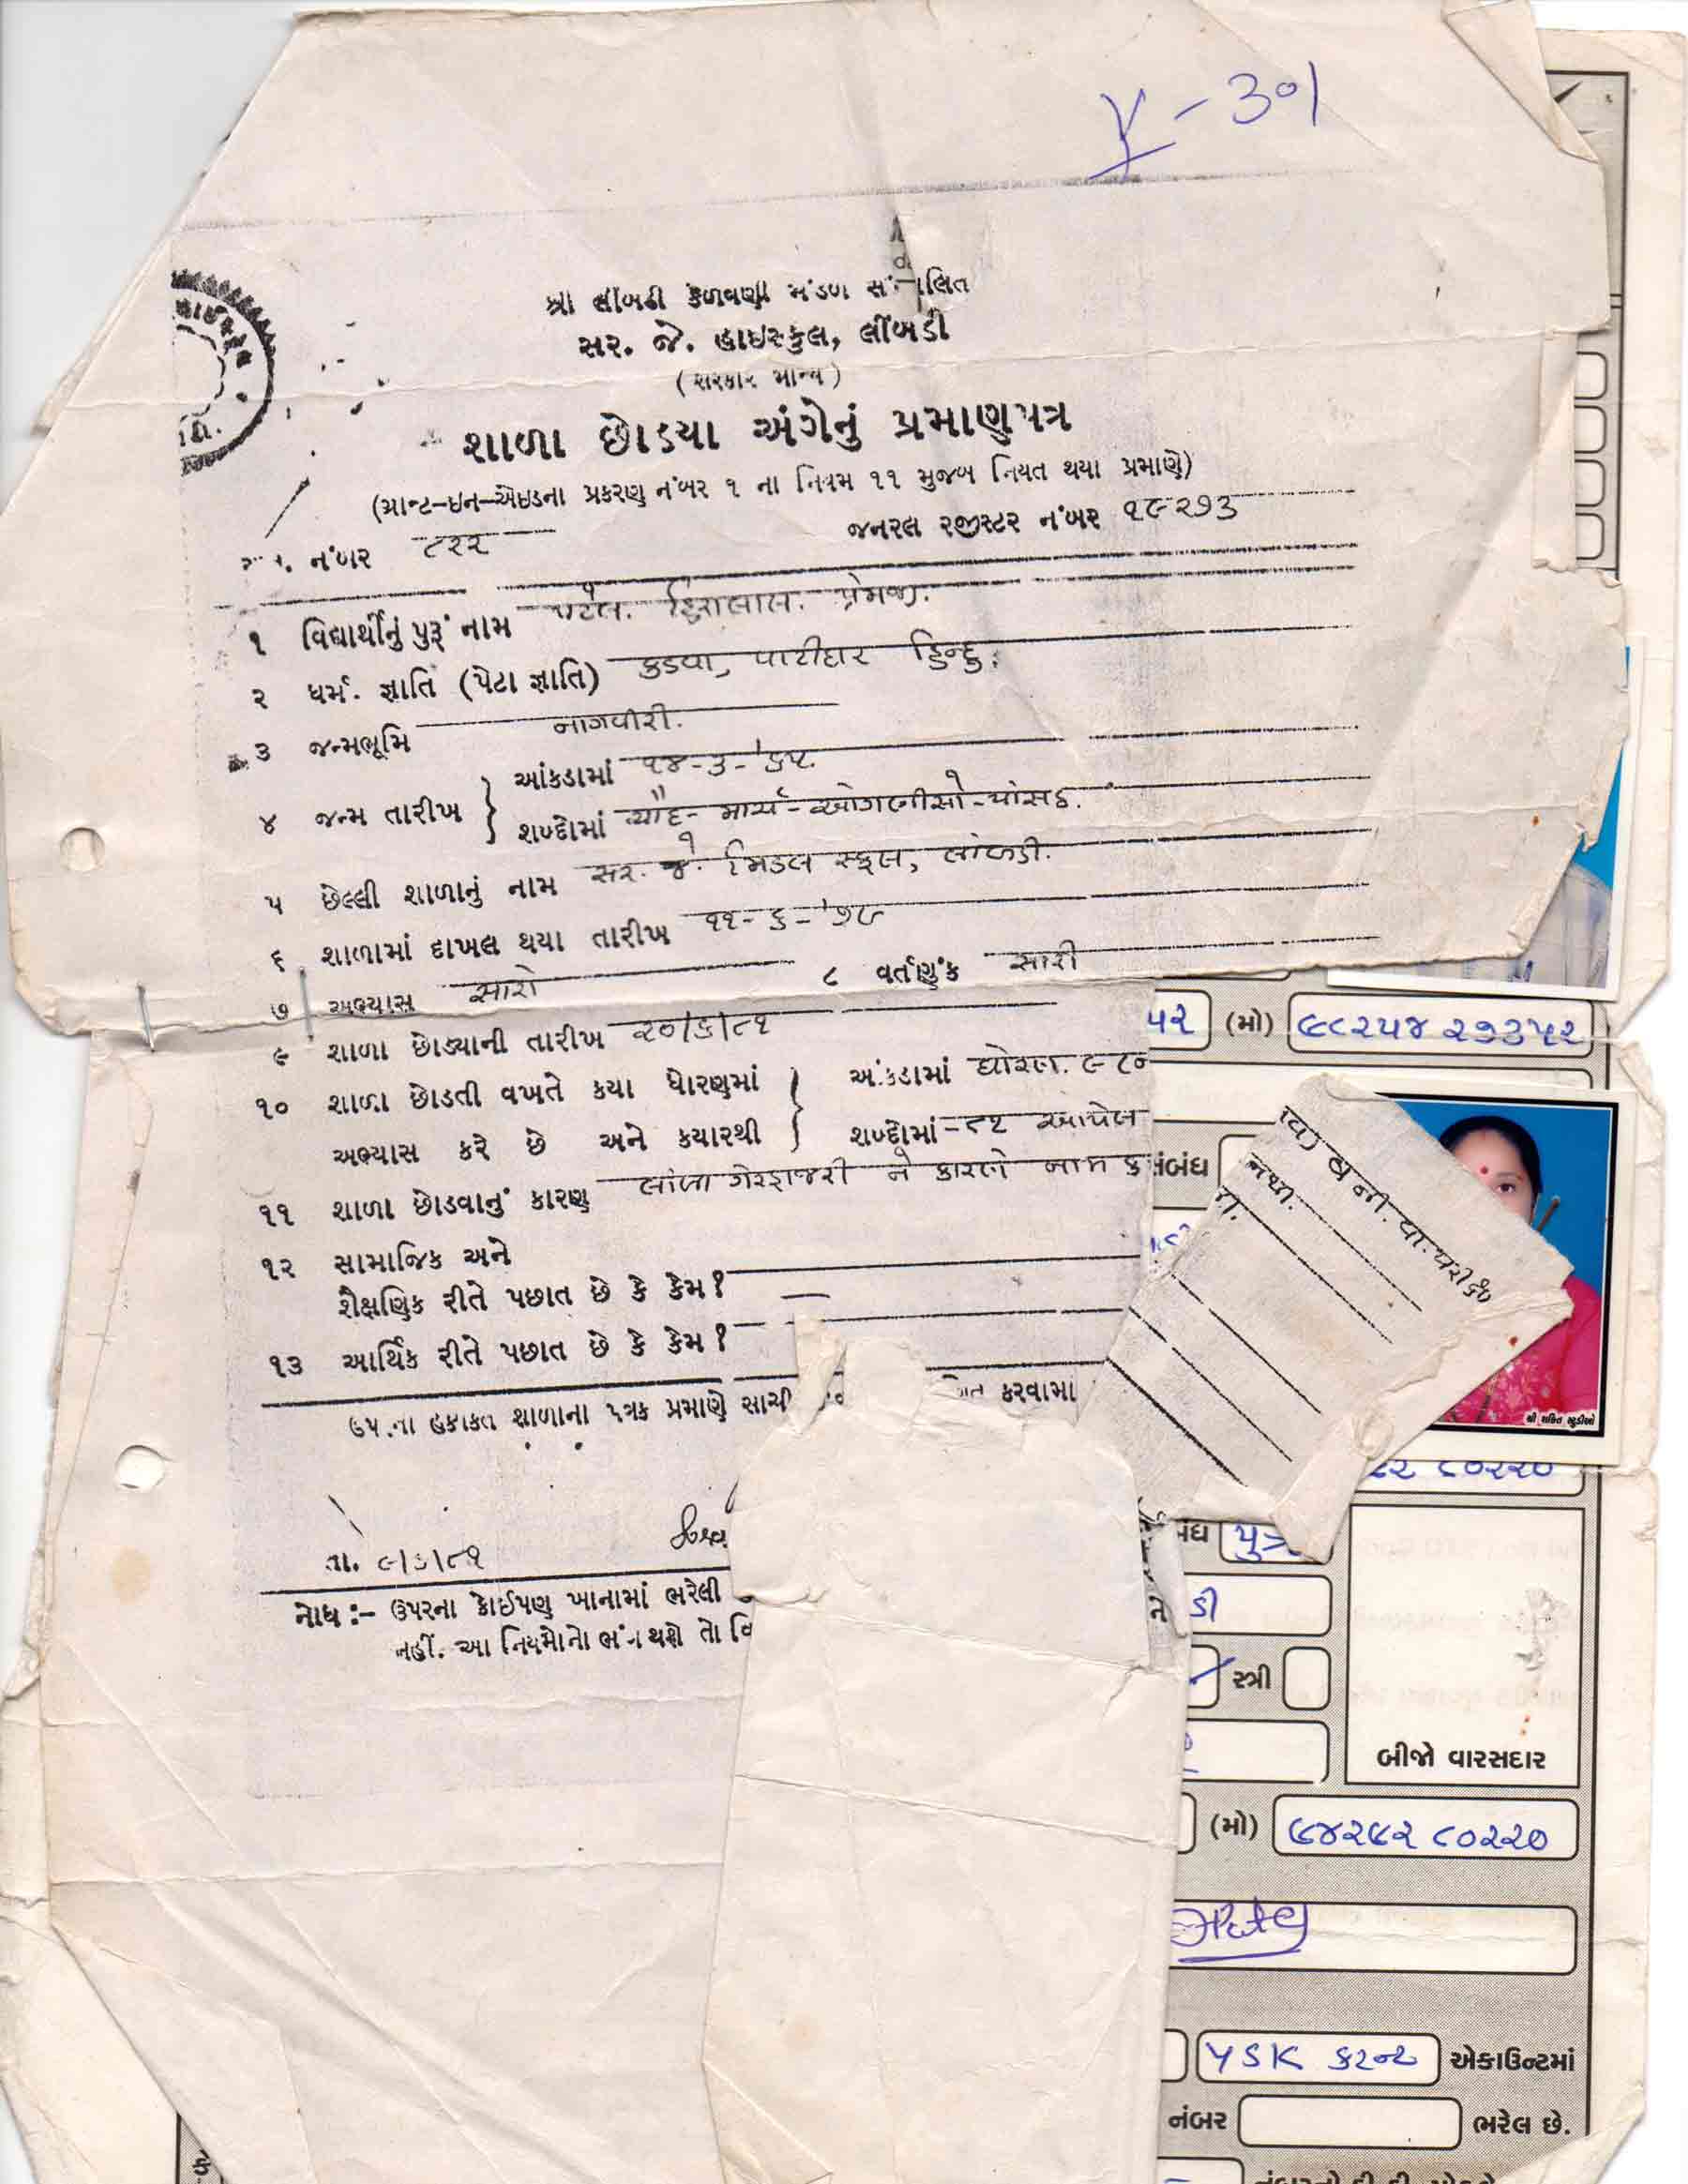 Y-301
શ્રી લીંબડી કેળવણી મંડળ સં લિત
સર. જે. હાઇસ્કુલ, લીંબડી
(સરકાર માન્ય)
શાળા છોડયા અંગેનું પ્રમાણપત્ર
(ગ્રાન્ટ-ઇન-એઇડના પ્રકરણ નંબર ૧ ના નિયમ ૧૧ મુજબ નિયત થયા પ્રમાણે)
નંબર ૮૨૨ જનરલ રજીસ્ટર નંબર ૧૯૨૭૩
૧ વિદ્યાર્થીનું પુરૂં નામ પટેલ. હિરાલાલ. પ્રેમજી.
૨ ધર્મ. જ્ઞાતિ (પેટા જ્ઞાતિ) કડવા, પાટીદાર હિન્દુ.
૩ જન્મભૂમિ નાગવીરી.
૪ જન્મ તારીખ } આંકડામાં ૧૪-૩-'૬૫.
શબ્દોમાં ચૌદ-માર્ચ-ઓગણીસો-પાંસઠ.
૫ છેલ્લી શાળાનું નામ સર. જે. મિડલ સ્કુલ, લીંબડી.
૬ શાળામાં દાખલ થયા તારીખ ૧૧-૬-'૭૯
૭ અભ્યાસ સારો ૮ વર્તણુંક સારી
૯ શાળા છોડ્યાની તારીખ ૨૦/૬/૮૧
૧૦ શાળા છોડતી વખતે કયા ધોરણમાં } અંકડામાં ધોરણ. ૯ ૮૦
અભ્યાસ કરે છે અને કયારથી } શબ્દોમાં -૮૧ આપેલ
૧૧ શાળા છોડવાનું કારણ લાંબા ગેરહાજરી ને કારણે નામ ક
૧૨ સામાજિક અને
શૈક્ષણિક રીતે પછાત છે કે કેમ?
૧૩ આર્થિક રીતે પછાત છે કે કેમ?
ઉપરના હકીકત શાળાના પત્રક પ્રમાણે સાચી કરવામા
તા. ૯/૬/૮૧
નોંધ :- ઉપરના કોઈપણ ખાનામાં ભરેલી
નહીં. આ નિયમોનો ભંગ થશે તો વિ
૫૨ (મો) ૯૮૨૫૪ ૨૭૩૫૨
વ ની. વા. પરીક્ષા
નથી.
સંબંધ
શ્રી શક્તિ સ્ટુડીઓ
૯૨ ૮૦૨૨૦
બંધ પુત્ર
ડી
સ્ત્રી
બીજો વારસદાર
(મો) ૯૪૨૯૨ ૮૦૨૨૦
YSK કરન્ટ એકાઉન્ટમાં
નંબર ભરેલ છે.
કે